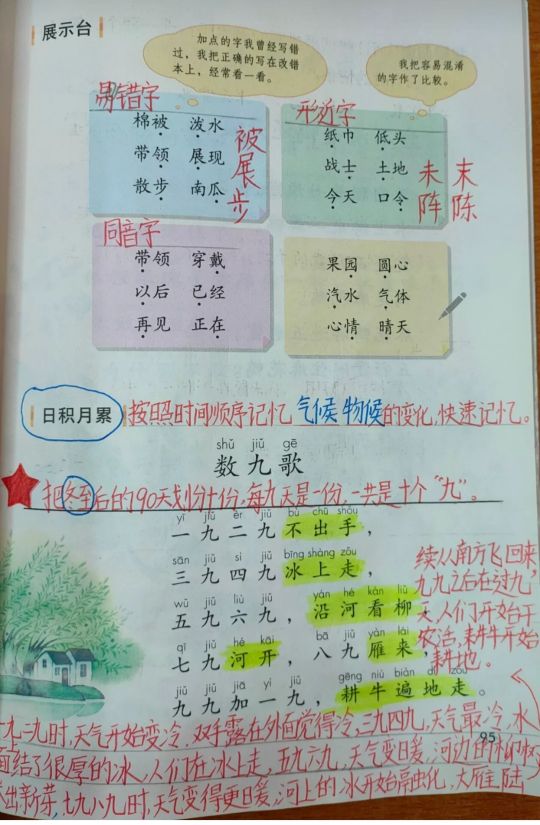 展示台
加点的字我曾经写错
过，我把正确的写在改错
本上，经常看一看。
我把容易混淆
的字作了比较。
易错字
棉被 泼水
带领 展现
散步 南瓜
被展步
形近字
纸巾 低头
战士 土地
今天 口令
未 末
阵 陈
同音字
带领 穿戴
以后 已经
再见 正在
果园 圆心
汽水 气体
心情 晴天
日积月累
按照时间顺序记忆气候物候的变化,快速记忆。
shǔ jiǔ gē
数九歌
把冬至后的90天划分十份,每九天是一份,一共是十个"九"。
yī jiǔ èr jiǔ bù chū shǒu
一九二九不出手，
sān jiǔ sì jiǔ bīng shàng zǒu
三九四九冰上走，
wǔ jiǔ liù jiǔ yán hé kàn liǔ
五九六九，沿河看柳
qī jiǔ hé kāi bā jiǔ yàn lái
七九河开，八九雁来，
jiǔ jiǔ jiā yī jiǔ gēng niú biàn dì zǒu
九九加一九，耕牛遍地走。
续从南方飞回来,
九九之后在过九
天,人们开始干
农活,耕牛开始
耕地。
一九二九时,天气开始变冷,双手露在外面觉得冷,三九四九,天气最冷,水
面结了很厚的冰,人们在冰上走,五九六九,天气变暖,河边的柳树
出新芽,七九八九时,天气变得更暖,河上的冰开始融化,大雁陆
95